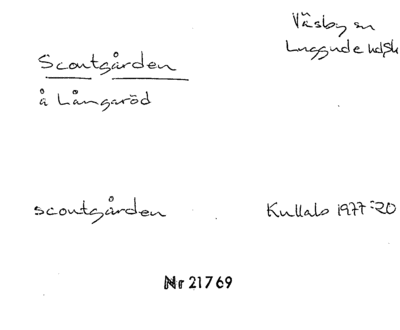 Väsby sn
Luggude hd, Sk
Scoutgården
å Långaröd
scoutgården
Kullabo 1977:20
Nr 21769